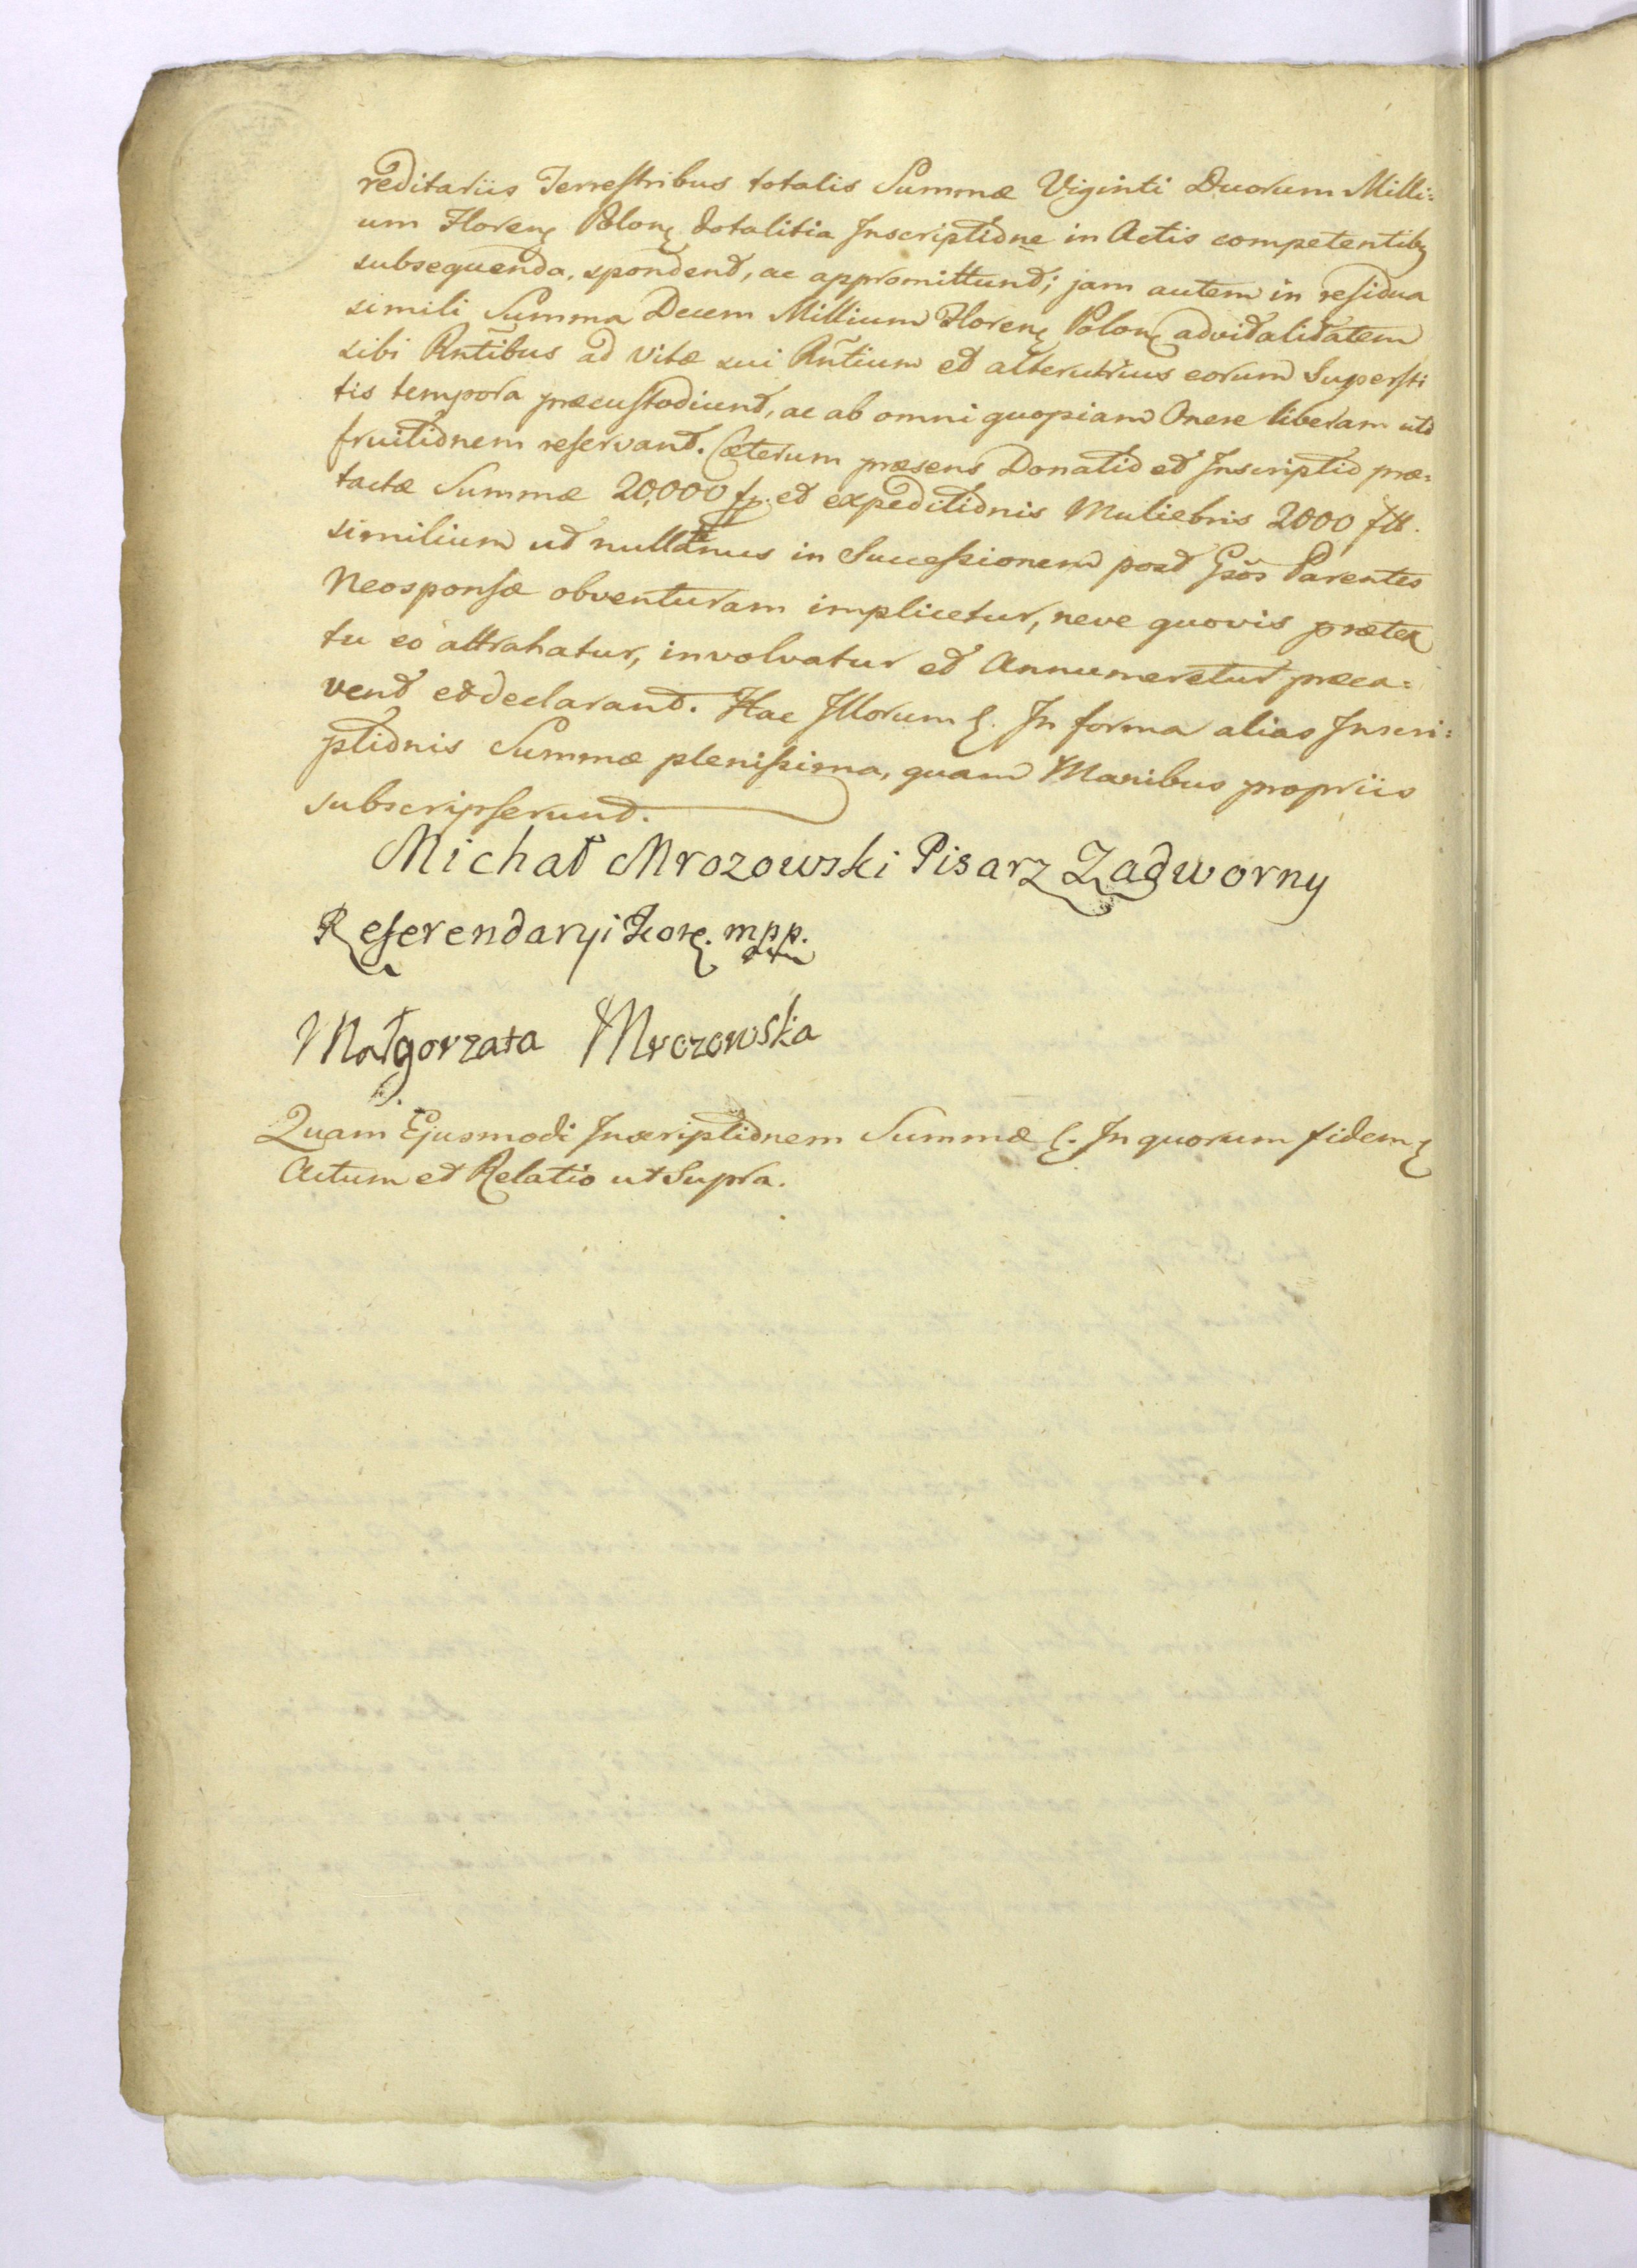 reditariis Terrestribus totalis Summæ Viginti Duorum Milli:
um Floren Polon dotalitia Inscriptione in Actis competentibq
subsequenda, spondent, ac appromittunt; jam autem in residua
simili Summa Decem Millium Floren Polon advitalitatem
sibi Rntibus ad vitæ sui Rntium et alterutrius eorum Supersti
tis tempora præcustodiunt, ac ab omni quopiam Onere liberam uti
fruitionem reservant. Cæterum præsens Donatio et Inscriptio præ:
tactæ Summæ 20,000 fp. et expeditionis Muliebris 2000 ftt.
similium ut nullatenus in Successionem post Gsos Parentes
Neosponsæ obventuram implicetur, neve quovis prætex
tu eo attrahatur, involvatur et Annumeretur præca:
vent et declarant. Hac Illorum. In forma alias Inscri:
ptionis Summæ plenissima, quam Manibus propriis
subscripserunt.
Michał Mrozowski Pisarz Zadworny
Referendaryi Kor. mpp.
Małgorzata Mrozowska
Quam Ejusmodi Inscriptionem Summæ. In quorum fidem
Actum et Relatio ut Supra.